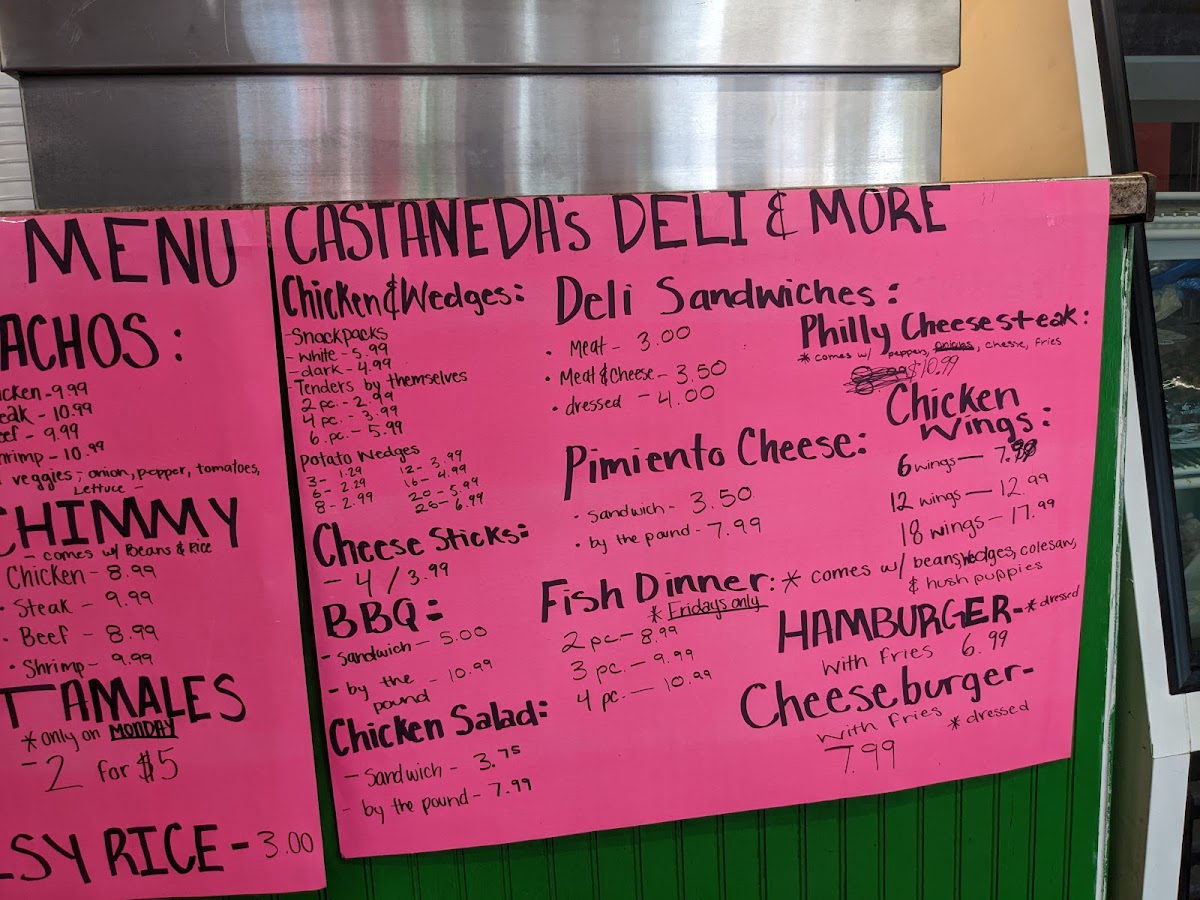 MENU
ACHOS:
icken - 9.99
eak - 10.99
eef - 9.99
hrimp - 10.99
veggies; onion, pepper, tomatoes,
Lettuce -
CHIMMY
- comes w/ Beans & Rice
Chicken - 8.99
• Steak - 9.99
• Beef - 8.99
• Shrimp - 9.99
TAMALES
* only on MONDAY
- 2 for $5
SY RICE - 3.00
CASTANEDA's DELI & MORE
Chicken & Wedges:
- Snackpacks
- white - 5.99
- dark - 4.99
- Tenders by themselves
2 pc. - 2.99
4 pc. - 3.99
6 pc. - 5.99
Potato Wedges
3 - 1.29
6 - 2.29
8 - 2.99
12 - 3.99
16 - 4.99
20 - 5.99
26 - 6.99
Cheese Sticks:
- 4 / 3.99
BBQ:
- sandwich - 5.00
- by the pound - 10.99
Chicken Salad:
- sandwich - 3.75
- by the pound - 7.99
Deli Sandwiches:
• Meat - 3.00
• Meat & Cheese - 3.50
• dressed - 4.00
Pimiento Cheese:
• sandwich - 3.50
• by the pound - 7.99
Fish Dinner: * comes w/ beans, wedges, coleslaw,
& hush puppies
* Fridays only
2 pc - 8.99
3 pc. - 9.99
4 pc. - 10.99
Philly Cheesesteak:
* comes w/ peppers, onions, cheese, fries
$10.99
Chicken
Wings:
6 wings - 7.99
12 wings - 12.99
18 wings - 17.99
HAMBURGER - * dressed
with fries 6.99
Cheeseburger -
with fries * dressed
7.99